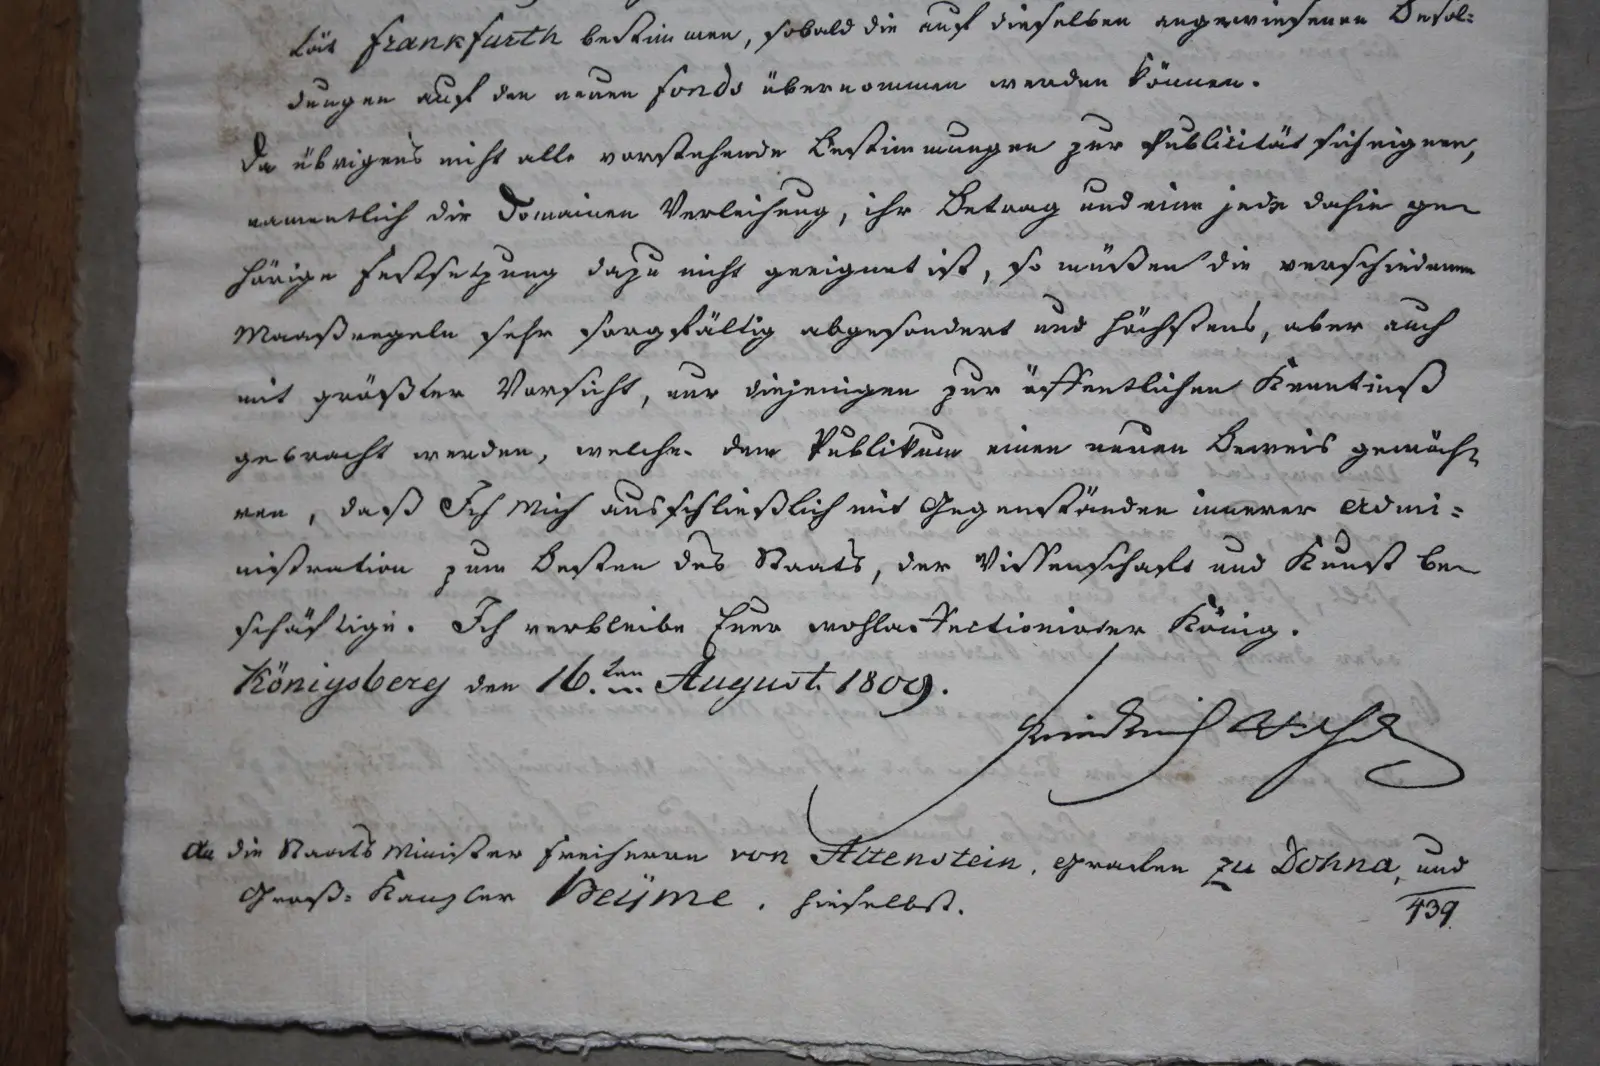 tät Frankfurth bestimmen, sobald die auf dieselben angewiesenen Besol=
dungen auf den neuen Fonds übernommen werden können.
Da übrigens nicht alle vorstehende Bestimmungen zur Publicität sich eignen,
namentlich die Domainen Verleihung, ihr Betrag und eine jede dahin ge=
hörige Festsetzung dazu nicht geeignet ist, so müßen die verschiedenen
Maaßregeln sehr sorgfältig abgesondert und höchstens, aber auch
mit größter Vorsicht, nur diejenigen zur öffentlichen Kenntniß
gebracht werden, welche dem Publikum einen neuen Beweis gewäh=
ren, daß Ich Mich ausschließlich mit Gegenständen innerer Admi=
nistration zum Besten des Staats, der Wissenschaft und Kunst be=
schäftige. Ich verbleibe Euer wohlaffectionirter König.
Königsberg den 16.ten August 1809.
Friedrich Wilhelm
An die Staats Minister Freiherrn von Altenstein, Grafen zu Dohna, und
Groß=Kanzler Beÿme, hieselbst.
439